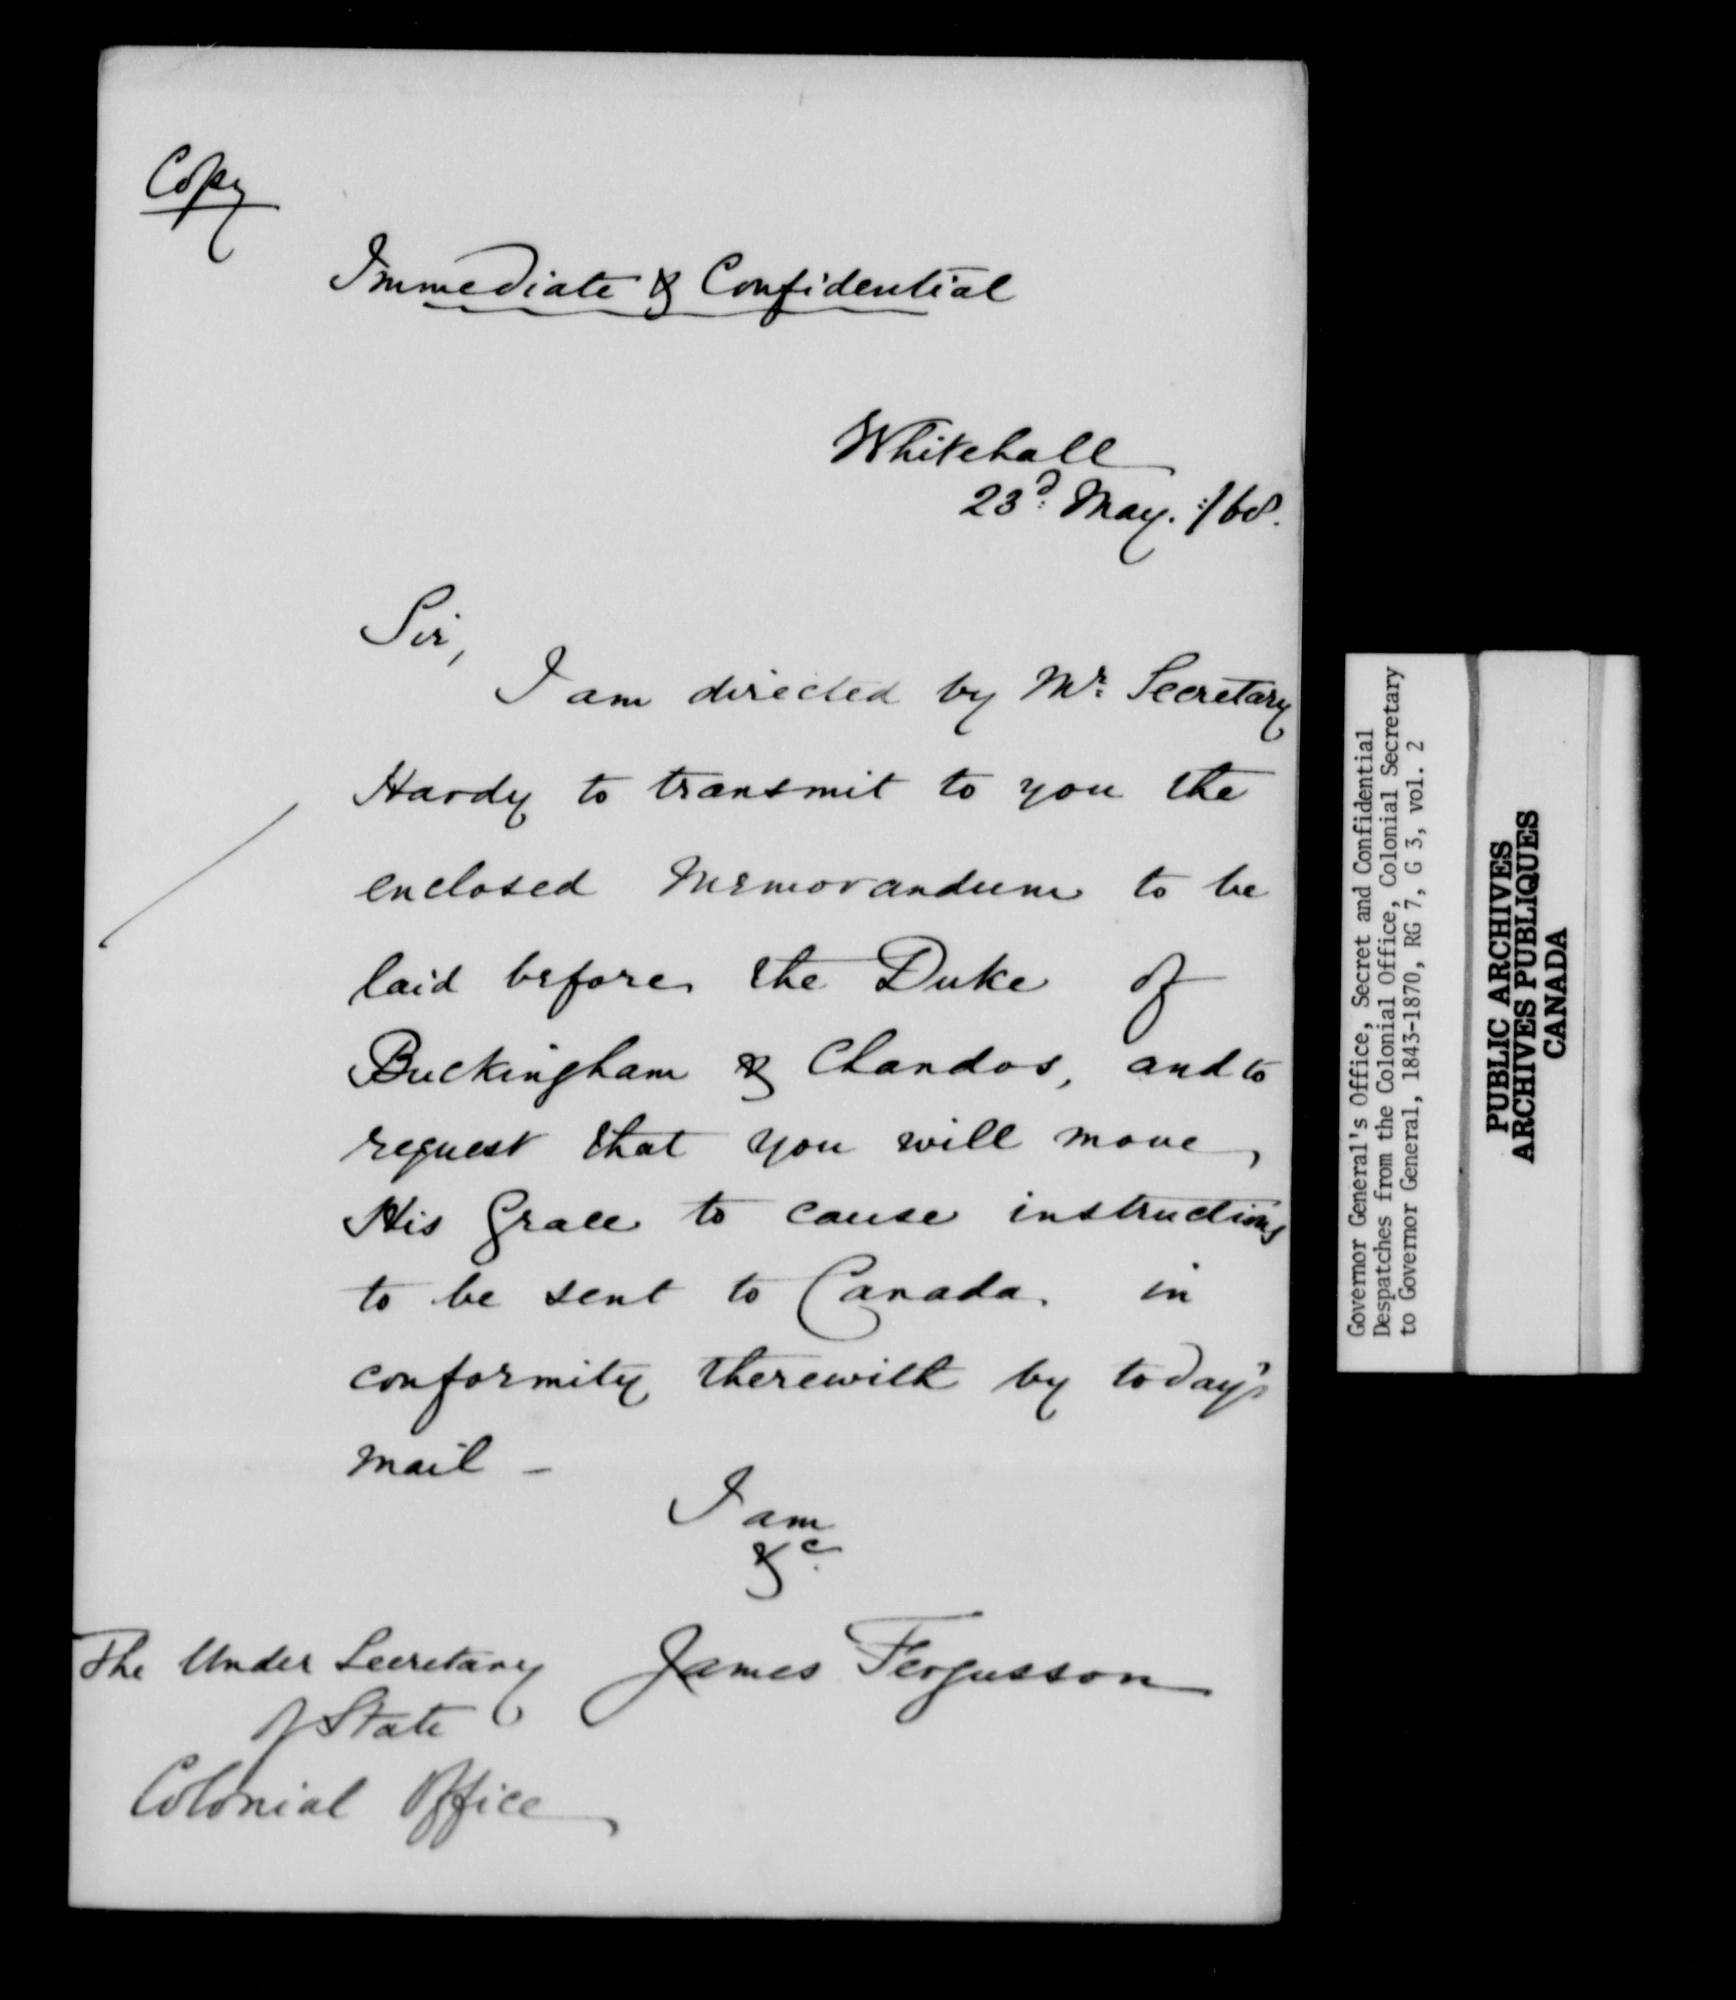 Copy
Immediate & Confidential
Whitehall
23d. May. /68.
Sir,
I am directed by Mr. Secretary
Hardy to transmit to you the
enclosed Memorandum to be
laid before the Duke of
Buckingham & Chandos, and to
request that you will move
His Grace to cause instructions
to be sent to Canada in
conformity therewith by today's
mail –
I am
&c.
James Fergusson
The Under Secretary
of State
Colonial Office
Governor General's Office, Secret and Confidential
Despatches from the Colonial Office, Colonial Secretary
to Governor General, 1843-1870, RG 7, G 3, vol. 2
PUBLIC ARCHIVES
ARCHIVES PUBLIQUES
CANADA